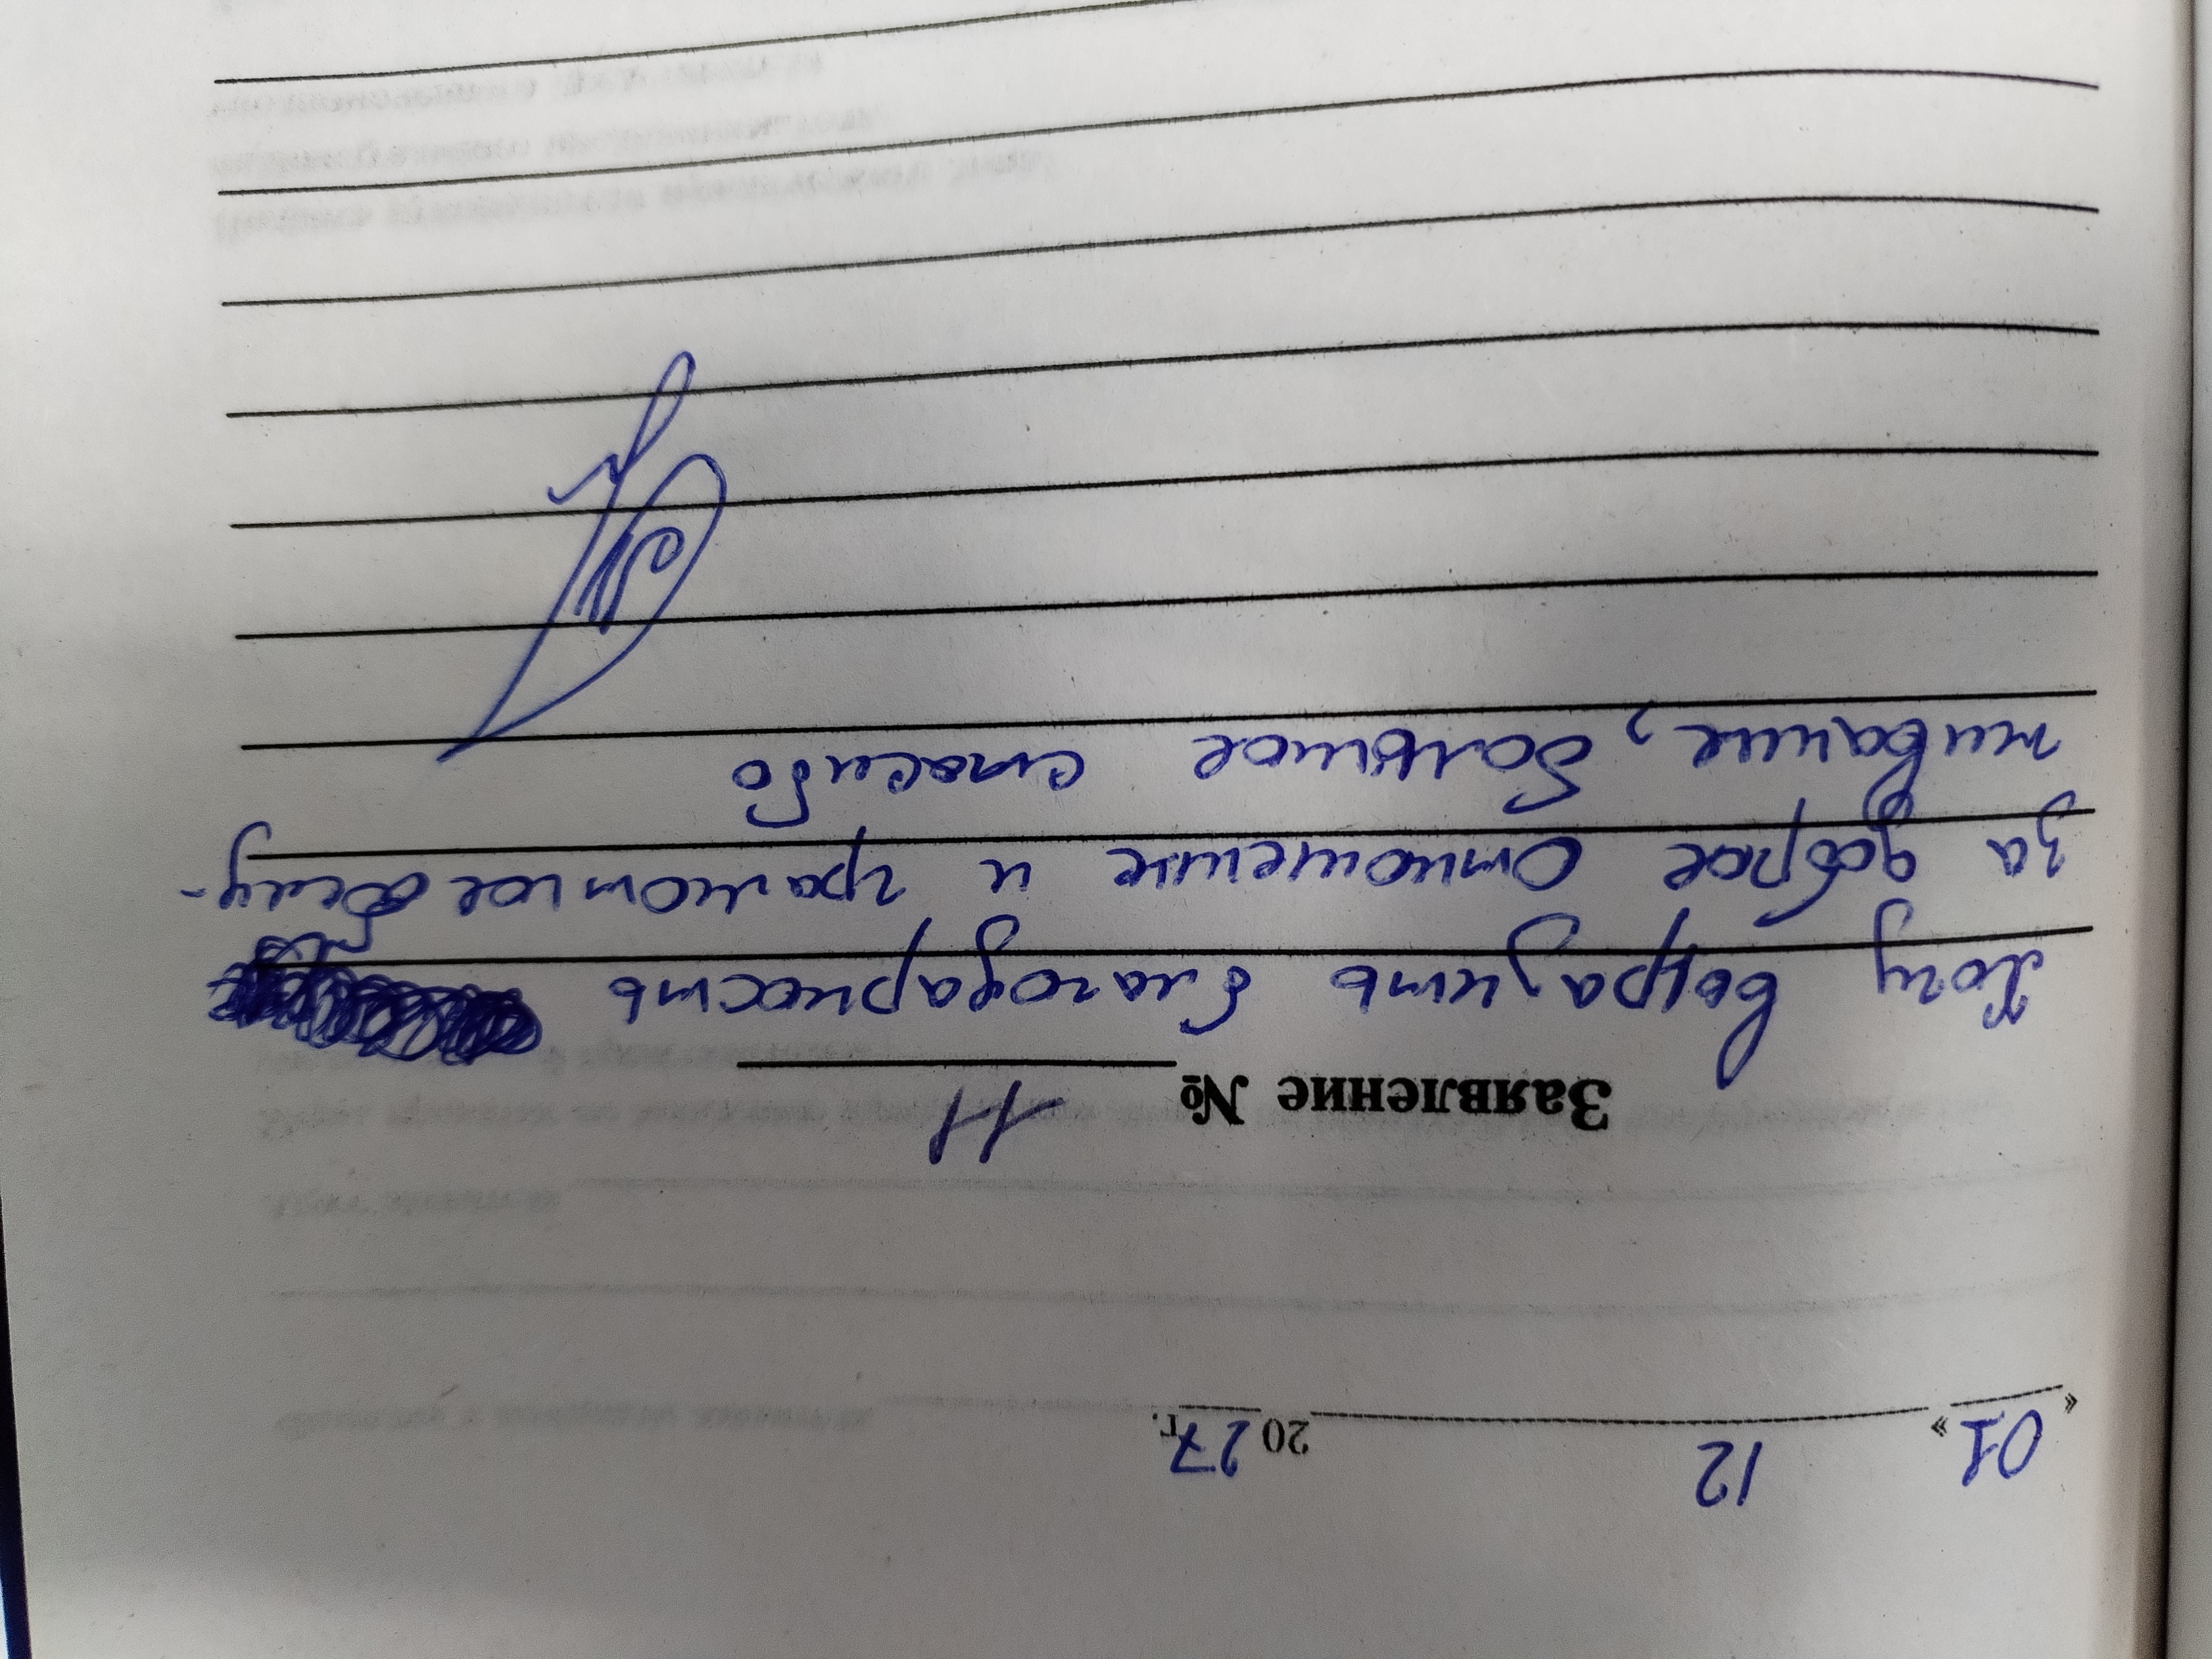 «01» 12 2027г.
Заявление № 11
Хочу выразить благодарность
за доброе отношение и грамотное обслу-
живание, большое спасибо